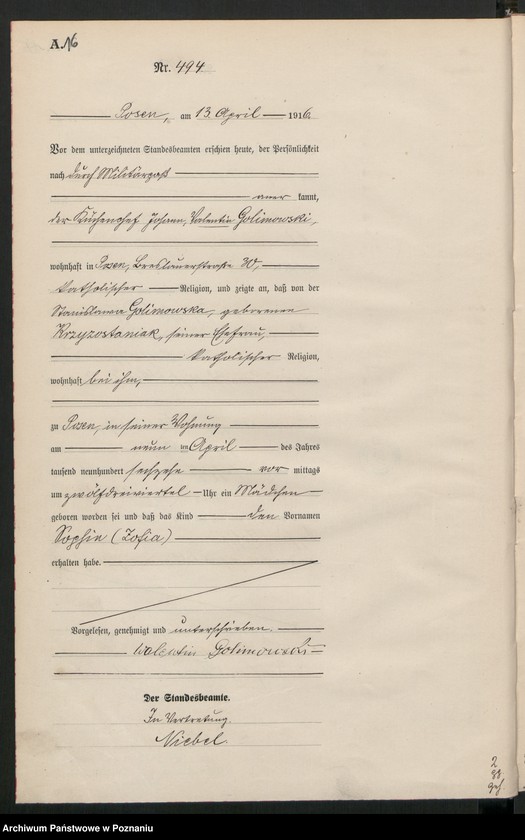 A.16
Nr. 494
Posen, am 13. April 1916.
Vor dem unterzeichneten Standesbeamten erschien heute, der Persönlichkeit
nach durch Militärpaß
aner kannt,
der Küchenchef Johann, Valentin Golimowski,
wohnhaft in Posen, Breslauerstraße 30,
katholischer Religion, und zeigte an, daß von der
Stanislawa Golimowska, geborenen
Krzyzostaniak, seiner Ehefrau,
katholischer Religion,
wohnhaft bei ihm,
zu Posen, in seiner Wohnung
am neun ten April des Jahres
tausend neunhundert sechzehn vor mittags
um zwölfdreiviertel Uhr ein Mädchen
geboren worden sei und daß das Kind den Vornamen
Sophie (Zofia)
erhalten habe.
Vorgelesen, genehmigt und unterschrieben.
Walentin Golimowski
Der Standesbeamte.
In Vertretung.
Niebel.
2
Archiwum Państwowe w Poznaniu